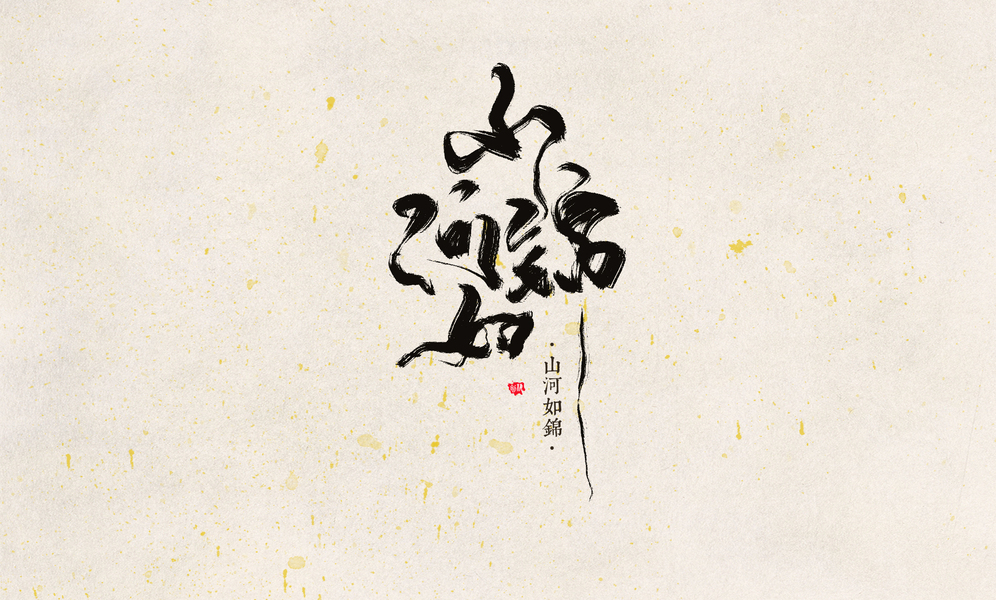 山河如錦
·山河如錦·